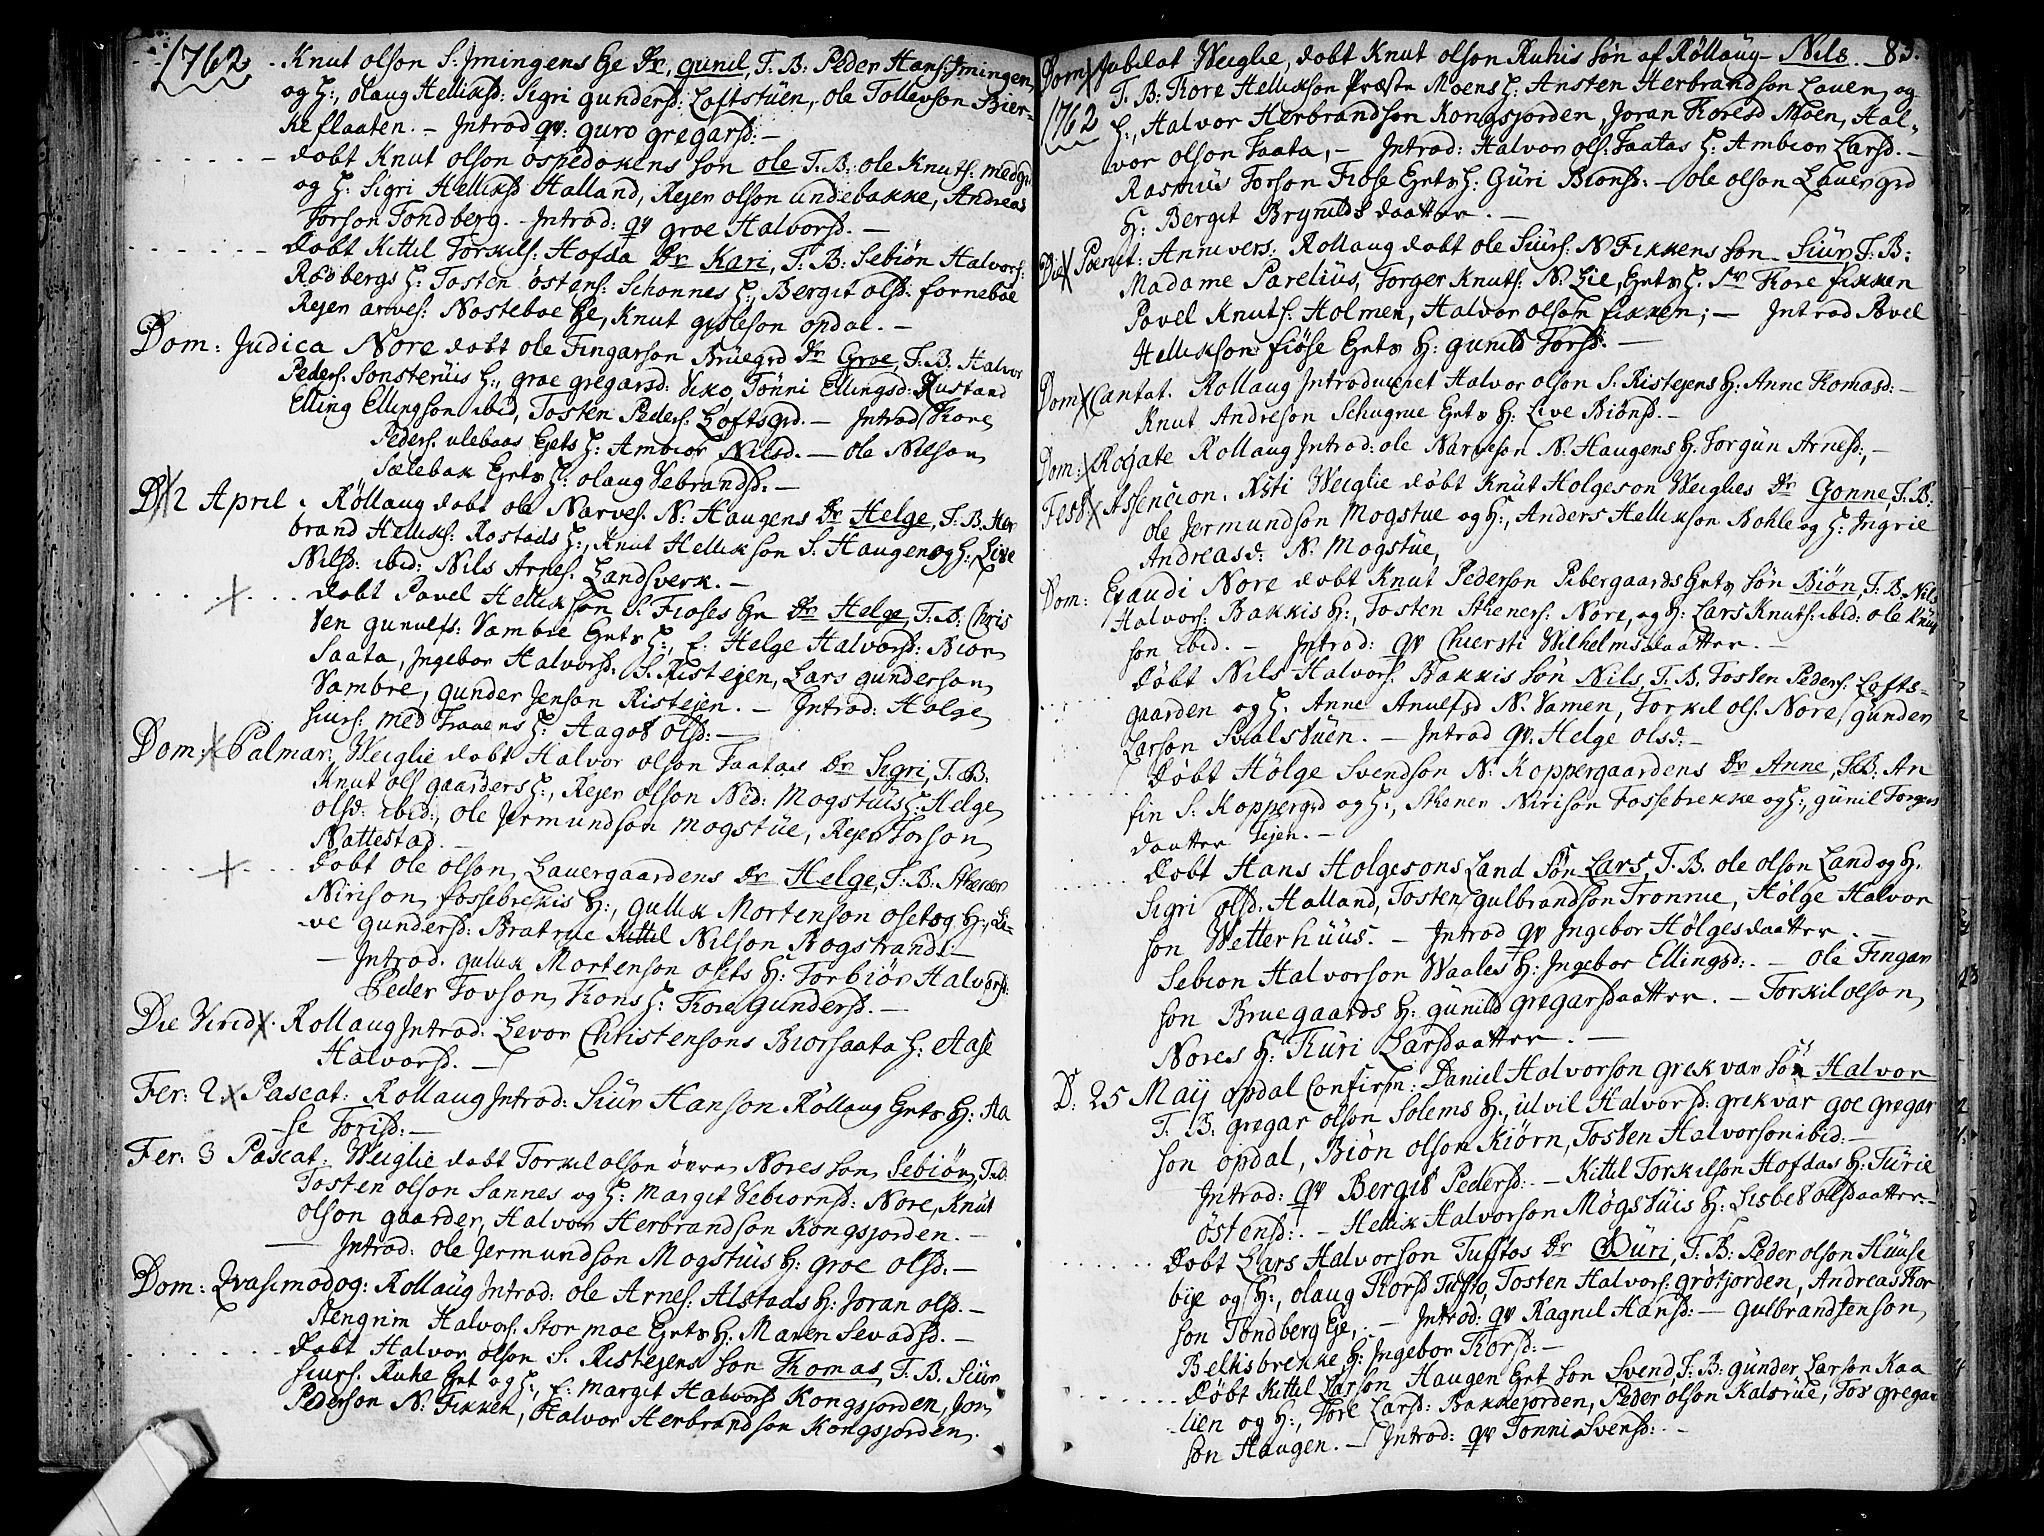 1762 - Knut olson S. Jmingens Ge Dr. gunil, T. B: Peder Hans: Jmingen,
og H:, olaug Helliksd: Sigri gundersd: Loftstüen, ole Tollevson Bier-
keflaaten. - Introd qv: guro gregarsd: -
- døbt Knut olson ospedokens søn ole T: B: ole Knuts: medgr
og H: Sigri Helliksd Halland, Rejer olson undebakke, Andreas
Torson Tondberg. - Introd: qv groe Halvorsd. -
- døbt Kittil Torkils: Hofda Dr Kari, T. B: Sebiön Halvors:
Rødbergs H: Tosten östens: Schonnes H:, Bergit olsd: fornebøe
Rejer arnes: Nosteboe Ge, Knut gisleson opdal. -
Dom: Judica Nore døbt ole Fingarson Brüegrd Dr Groe, T. B. Halvor
Peders: Sonsteruis H:, groe gregarsd: Viko, Tönni Ellingsd: Rustand
Elling Ellingson ibid, Tosten Peders: Loftsgrd. - Introd Tkore
Peders: ulebaas Gets H: Ambior Nilsd. - ole Nilson
Sælebak Gntv H: olaug Vebrandsd. -
D. 12 April. Røllaug døbt ole Narves. N: Haugens Dr Helge, T. B. Her
brand Helliks: Rostads H:, Knut Hellikson S. Haugen og H: Live
Nilsd: ibid: Nils Arnes. Landsverk. -
døbt Pavel Hellikson S. Fioses Ge Dr Helge, T. B: Chris
ten gunulfs: Vambre Gntv H:, E: Helge Halvorsd: Bior
Saata, Ingebor Halvorsd: S. Ristejen, Lars gunderson
Vambre, gunder Jenson Ristejen. - Introd: Holge
siurs: med Frauens H: Aagot olsd: -
Dom: Palmar. Weiglie døbt Halvor olson Taatas Dr Sigri, T. B.
Knut ols gaarders H:, Rejer olson Ned: Mogstuis H: Helge
olsd: ibid:, ole Jermundson Mogstüe, Rejer Torson
Nattestad. -
døbt ole olson Lauergaardens Dr Helge, T: B: Skener
Nirison fossebrekis H:, gullik Mortenson oset og H:, Li-
ve gundersd: Bratrue Kittil Nilson Rogstrand. -
- Introd. gullik Mortenson osets H: Torbiör Halvorsd:
Peder Tovson Tkons H: Tkore gundersd. -
Die Virid. Rollaug Introd: Levor Christensons Biorsaata H: Aase
Halvorsd. -
Fer: 2 Pascat: Rollaug Introd: Siur Hanson Røllaug Gntv H: Aa
se Torisd: -
Fer: 3 Pascat: Weiglie døbt Torkil olson övre Nores son Sebiön, T. B:
Tosten olson Sannes og H: Margit Vebiornsd: Nore, Knut
olson gaarder, Halvor Herbrandson Kongsjorden. -
Introd: ole Jermundson Mogstuis H: groe olsd: -
Dom: Qvasimodog: Rollaüg Introd: ole Arnes: Alstads H: Joran olsd. -
Stengrim Halvors: Stormoe Gntv H: Maren Sevadsd. -
døbt Halvor olson S. Ristejens son Tkomas, T. B. Siür
siurs. Ruhe Gnt og H:, E: Margit Halvorsd Kongsjorden, Jon
Pederson N: Fikken, Halvor Herbrandson Kongsjorden.
Dom: Jubilat Weiglie, døbt Knut olson Ruhis søn af Röllaug - Nils. 83.
1762
T. B: Tkore Hellikson Præste Moens H: Ansten Herbrandson Lauen, og
H:, Halvor Herbrandson Kongsjorden, Joran Tkoresd Moen, Hal-
vor olson Taata, - Introd: Halvor ols: Taatas H: Ambior Larsd. -
Rasmus Torson Fiose Gntv H: Guri Bionsd: - ole olson Lauergrd
H: Bergit Brynilds daatter. -
Die Poenit: Annivers: Rollaug døbt ole Siurs: N: Fikkens son Siur, T. B:
Madame Parelius, Torger Knuts: N: Lie, Gntv H: Sr Tkore fikken
Povel Knuts: Holmen, Halvor olson fikken; - Introd Povel
Hellikson fiöse Gntv H: gunild Torsd: -
Dom: Cantat. Rollaug Introduceret Halvor olson S. Ristejens H: Anne Tkomasd: -
Knut Andreson Schugrue Gntv H: Live Biönsd: -
Dom: Rogate Rollaug Introd: ole Narveson N: Haugens H: Torgun Arnesd:, -
Fest: Assencion. Xsti Weiglie døbt Knüt Holgeson Weiglies Dr Gonne, T. B:
ole Jermundson Mogstue og H:, Anders Hellikson Bohle og H: Ingrie
Andreasd: N: Mogstüe,
Dom: Exaudi Nore døbt Knut Pederson Pibergaards Gntv søn Biön, T. B. Nils
Halvors: Bakkis H:, Tosten Skeners: Nore, og H: Lars Knuts: ibid: ole Knut
son ibid. - Introd: qv Chiersti Wilhelmsdaatter. -
døbt Nils Halvors: Bakkis søn Nils T. B. Tosten Peders: Lofts-
gaarden og H: Anne Anulfsd N: Vamen, Torkil ols. Nore, gunder
Larson Pvalstüen. - Introd qv. Helge olsd: -
døbt Holge Svendson N: Koppergaardens Dr Anne, T. B. An
fin S: Koppergrd og H:, Skener Nirison Fossebrekke og H:, günil Torgers
daatter Lejen. -
døbt Hans Holgesons Land søn Lars, T. B. ole olson Land og H:
Sigri olsd: Halland, Tosten gulbrandson Tronnie, Hölge Halvor
son Wetterhuus. - Introd qv Ingebor Hölgesdaatter. -
Sebion Halvorson Waales H: Ingebor Ellingsd: - ole Fingar
son Bruegaards H: günild gregarsdaatter. - Torkil olson
Nores H: Tkuri Larsdaatter. -
D: 25 Maij opdal Confirm: Daniel Halvorson grekvar søn Halvor
T. B: gregar olson Solems H:, ulvil Halvorsd: grekvar goe gregar
son opdal, Biön olson Kiörn, Tosten Halvorson ibid: -
Introd: qv Bergit Pedersd: - Kittil Torkilson Hofdas H: Türie
östensd: - Hellik Halvorson Mogstuis H: Lisbet olsdaatter: -
døbt Lars Halvorson Tufttos Dr Guri, T: B: Peder olson Huuse
bye og H:, olaug Tkorsd Tufto, Tosten Halvors: grötjorden, Andreas Tkor
son Tondberg Eje, - Introd: qv Ragnil Hansd: - gulbrand Stenson
Belkisbrekke H: Ingebor Tkorsd: -
døbt Kittil Larson Haugen Gnt søn Svend, T: B: günder Larson Kaa
lien og H:, Tore Larsd: Bakkejorden, Peder olson Kalsrüe, Tor gregar
son Haugen. - Introd: qv Tonni Svensd: -